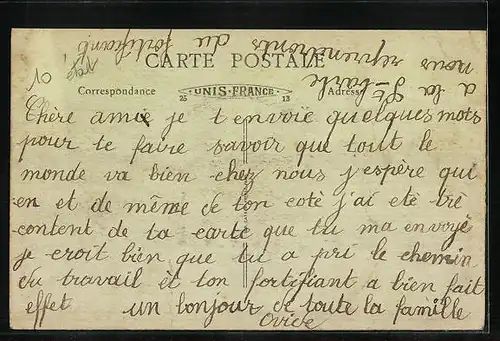 CARTE POSTALE
Correspondance
UNIS-FRANCE
25 13
Adresse
10
Chère amie je t envoie quelques mots
pour te faire savoir que tout le
monde va bien chez nous j'espère qui
en et de même de ton coté j'ai eté trè
content de ta carte que tu ma envoyé
je croit bien que tu a pri le chemin
du travail et ton fortifiant a bien fait
effet un bonjour de toute la famille
Ovide
a la St-barbe
nous reprendrons du fortifiant